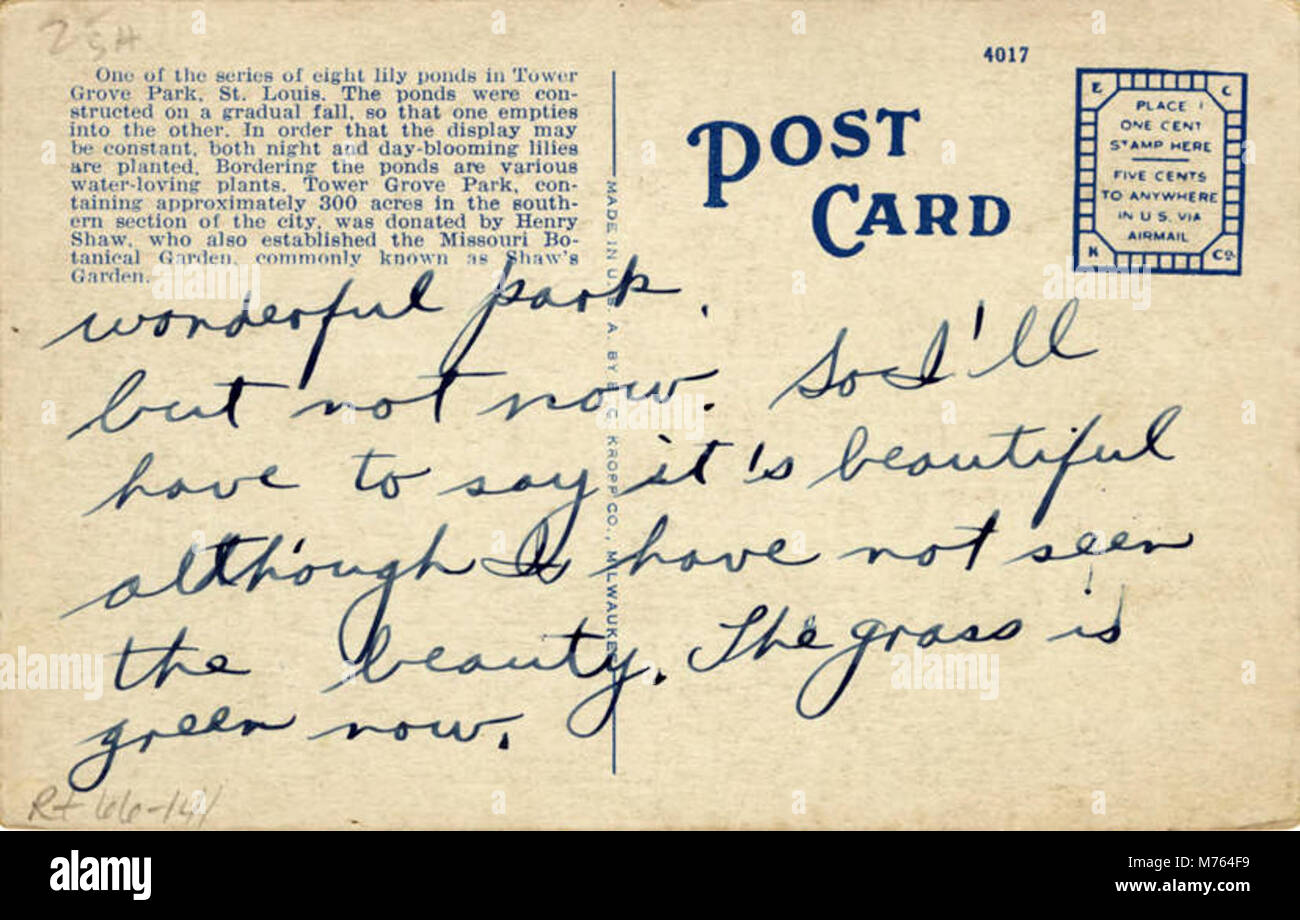 One of the series of eight lily ponds in Tower
Grove Park, St. Louis. The ponds were con-
structed on a gradual fall, so that one empties
into the other. In order that the display may
be constant, both night and day-blooming lilies
are planted. Bordering the ponds are various
water-loving plants. Tower Grove Park, con-
taining approximately 300 acres in the south-
ern section of the city, was donated by Henry
Shaw, who also established the Missouri Bo-
tanical Garden, commonly known as Shaw's
Garden.
4017
POST
CARD
E. C.
PLACE 1
ONE CENT
STAMP HERE
FIVE CENTS
TO ANYWHERE
IN U S. VIA
AIRMAIL
K Co.
MADE IN U.S.A. BY E. C. KROPP CO., MILWAUKEE
wonderful park.
but not now. So I'll
have to say it's beautiful
although I have not seen
the beauty. The grass is
green now.
alamy
Image ID: M764F9
www.alamy.com